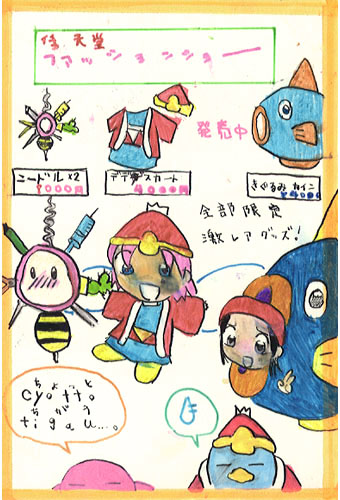 任天堂
ファッションショー
発売中
ニードル x2
¥1000円
デデ夢スカート
¥4000円
きぐるみ カイン
全部限定
激レアグッズ!
ちょっと
cyotto
ちがう
tigau....。